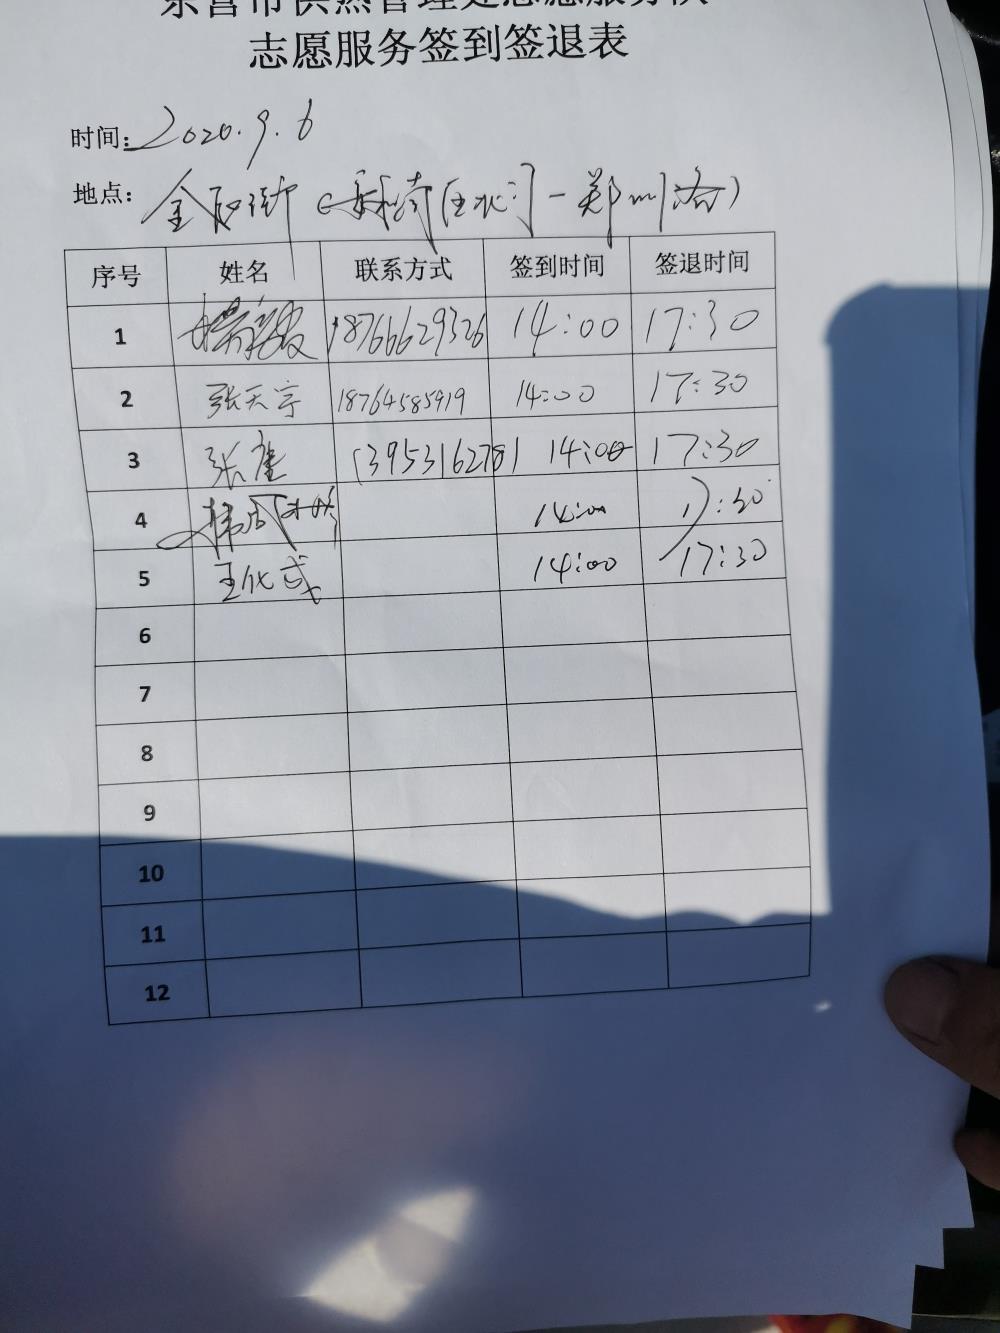 东营市供热管理处志愿服务队
志愿服务签到签退表
时间: 2020.9.6
地点: 金 街 ( 河—郑州路)
序号 姓名 联系方式 签到时间 签退时间
1 18766629326 14:00 17:30
2 张天宇 18764585919 14:00 17:30
3 张隆 13953162781 14:00 17:30
4 14:00 17:30
5 王化武 14:00 17:30
6
7
8
9
10
11
12